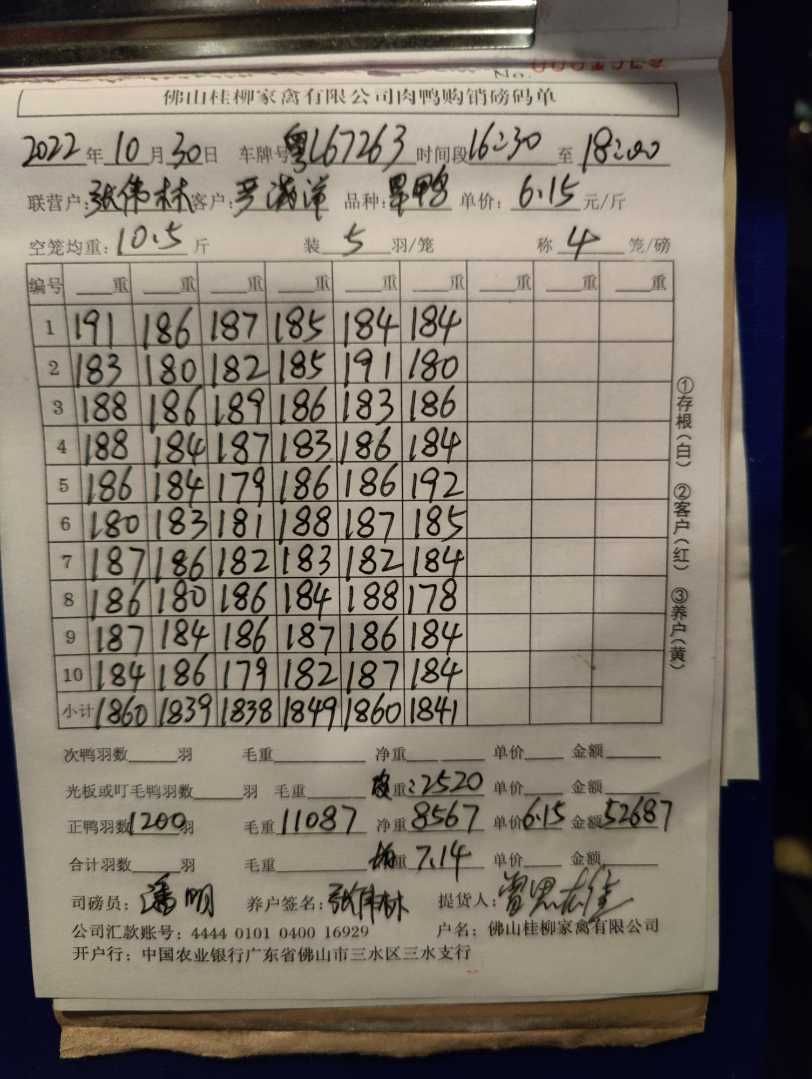 No.
佛山桂柳家禽有限公司肉鸭购销磅码单
2022年10月30日 车牌号粤L67263 时间段16:30至18:00
联营户:张伟林 客户: 品种:旱鸭 单价:6.15元/斤
空笼均重:10.5斤 装5羽/笼 称4笼/磅
编号 重 重 重 重 重 重 重 重 重
1 191 186 187 185 184 184
2 183 180 182 185 191 180
3 188 186 189 186 183 186
4 188 184 187 183 186 184
5 186 184 179 186 186 192
6 180 183 181 188 187 185
7 187 186 182 183 182 184
8 186 180 186 184 188 178
9 187 184 186 187 186 184
10 184 186 179 182 187 184
小计 1860 1839 1838 1849 1860 1841
①存根(白) ②客户(红) ③养户(黄)
次鸭羽数 羽 毛重 净重 单价 金额
光板或叮毛鸭羽数 羽 毛重 重:2520 单价 金额
正鸭羽数1200羽 毛重11087 净重8567 单价6.15 金额52687
合计羽数 羽 毛重 均重7.14 单价 金额
司磅员:潘明 养户签名:张伟林 提货人:
公司汇款账号:4444 0101 0400 16929 户名:佛山桂柳家禽有限公司
开户行:中国农业银行广东省佛山市三水区三水支行